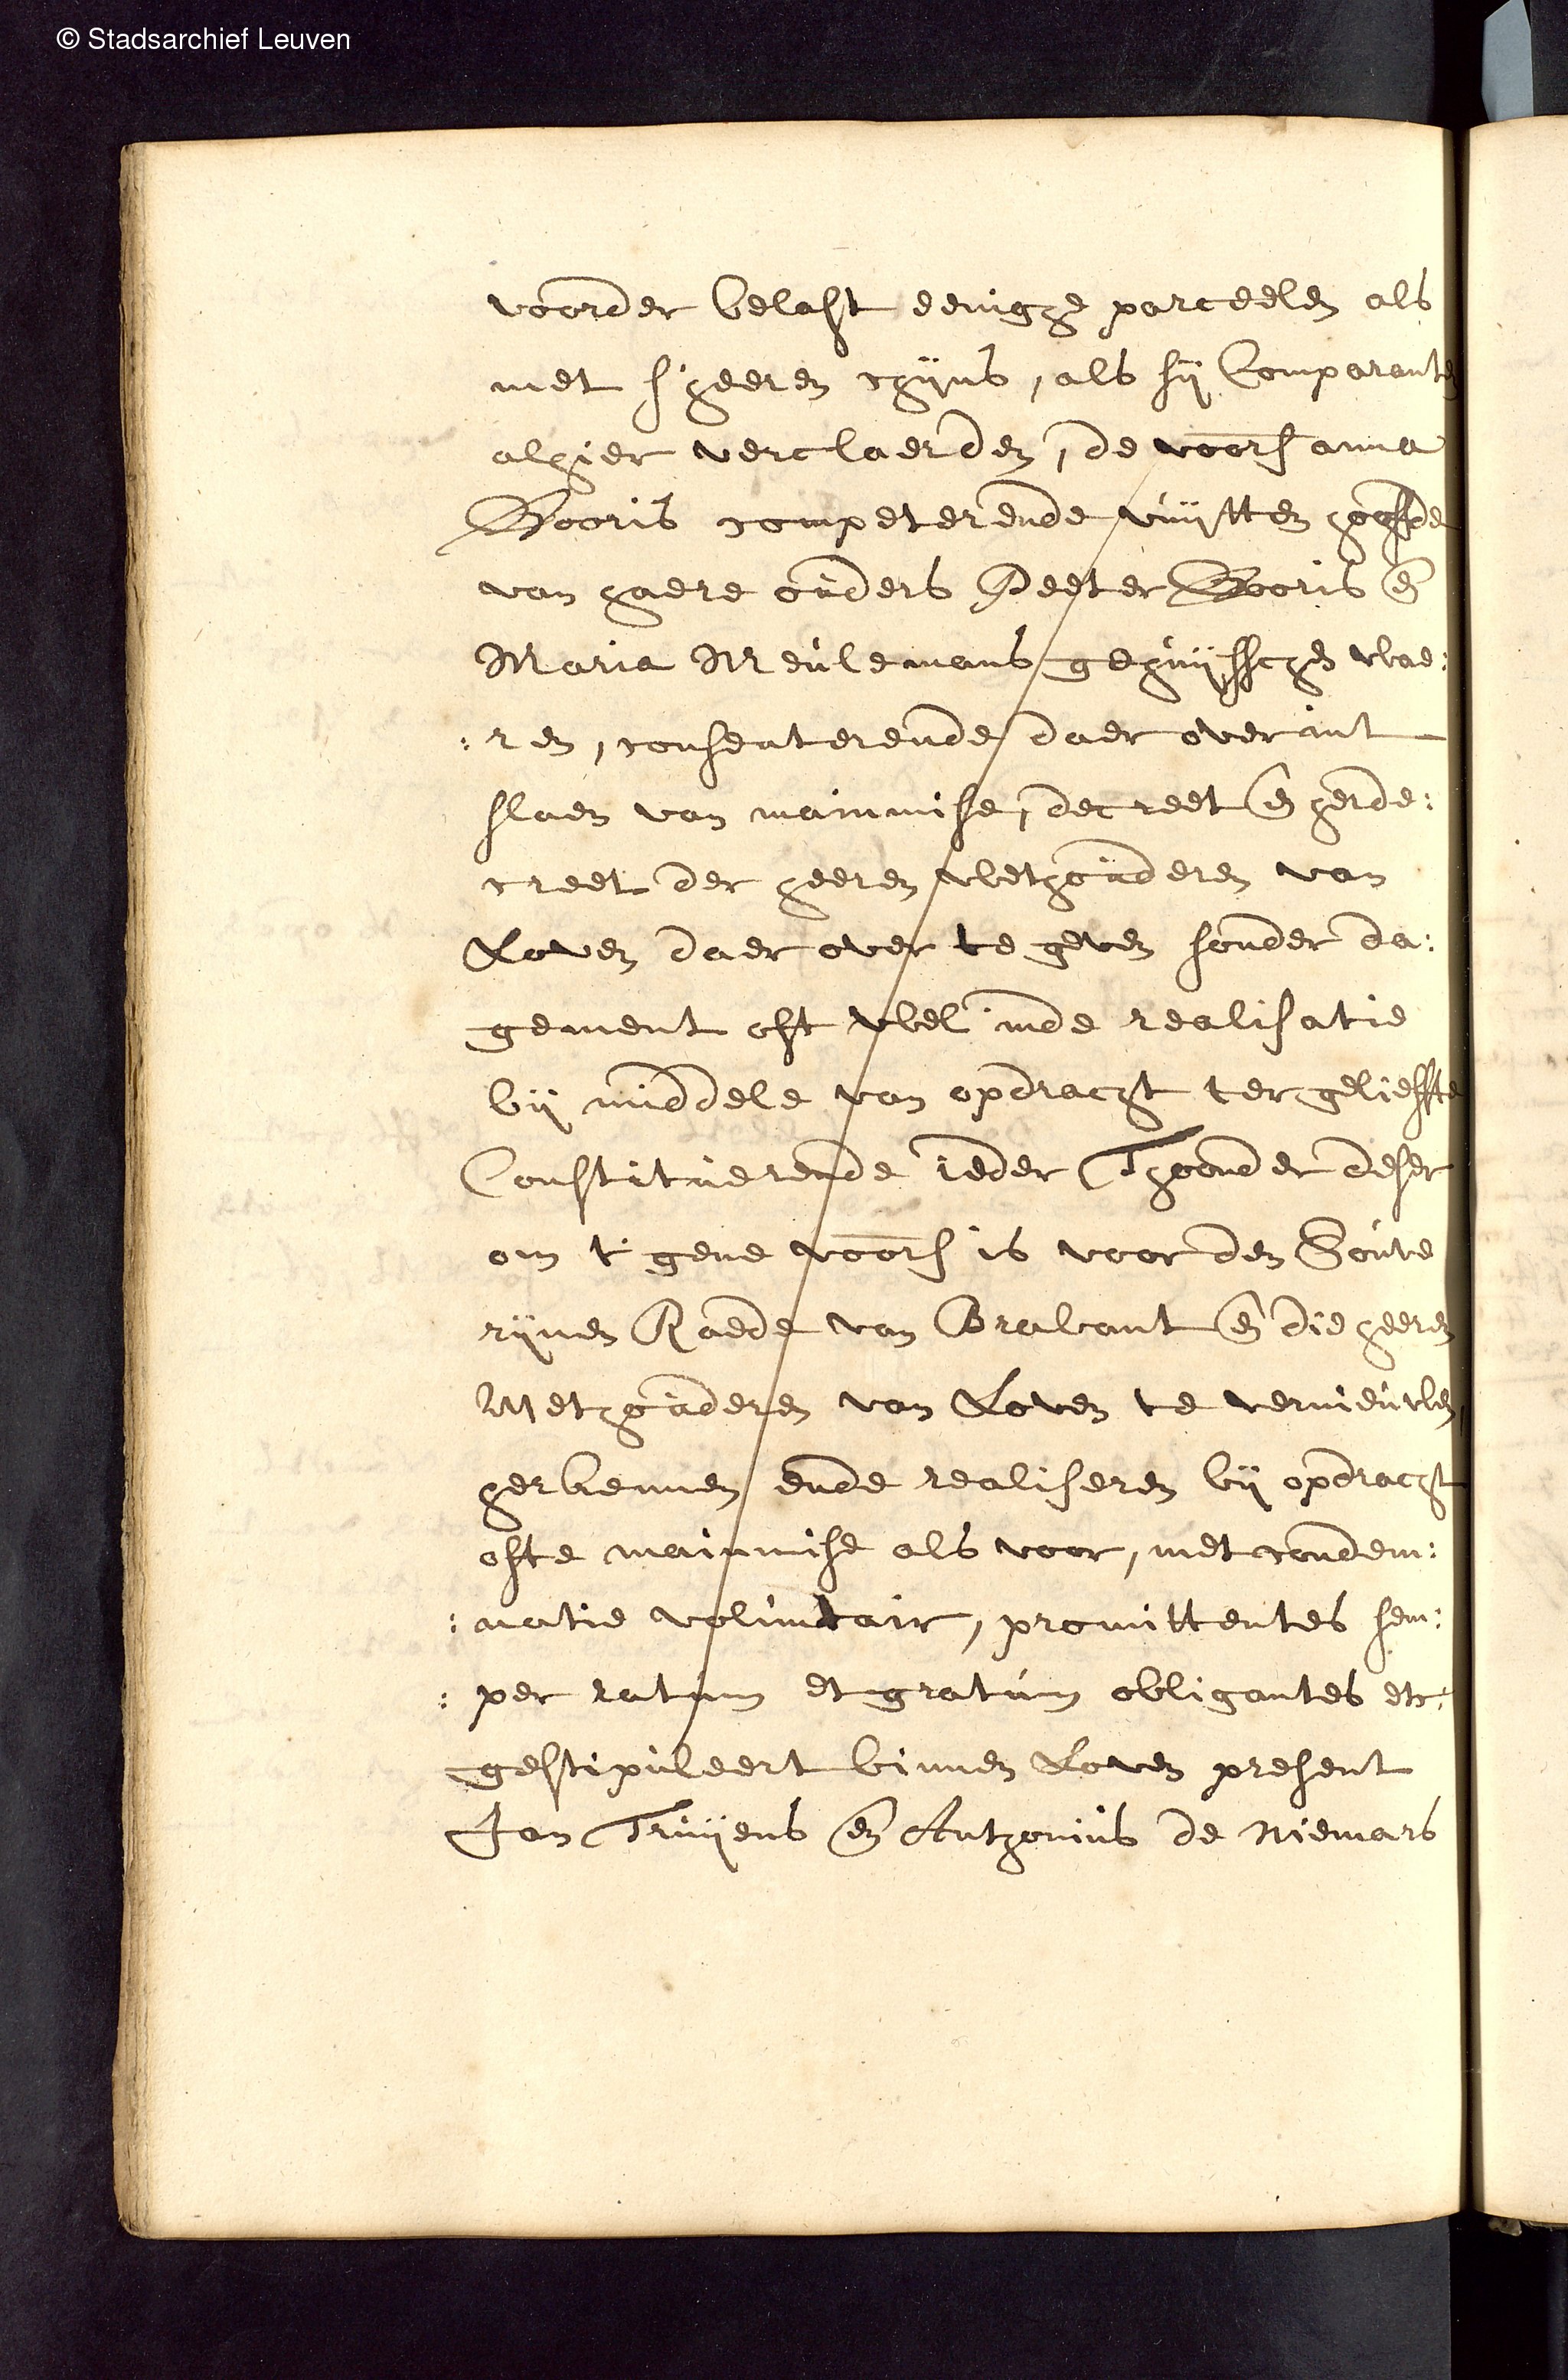 © Stadsarchief Leuven
voorder belast eenighe parceelen als
met s'heeren chijns, als sij Comparanten
alhier verclaerden, de voors anna
Booris competerende vuijtten hooffde
van haere ouders Peeter Booris en
Maria Meulemans gehuijsschen wae:
:ren, consenterende daer over int
slaen van mainmise, decreet en herde:
creet der heeren wethouderen van
Loven daer over te geven sonder da:
gement oft wel inde realisatie
bij middele van opdracht ter gelieffte
Constituerende ieder Thoonder deser
om t' gene voors is voor den Souve
rijnen Raede van Brabant en die heeren
Wethouderen van Loven te vernieuwen,
herkennen ende realiseren bij opdracht
ofte mainmise als voor, met condem:
:natie voluntair, promittentes sem:
:per ratum et gratum obligantes etc:
gestipuleert binnen Loven present
Jan Truijens en Anthonius de Niemars